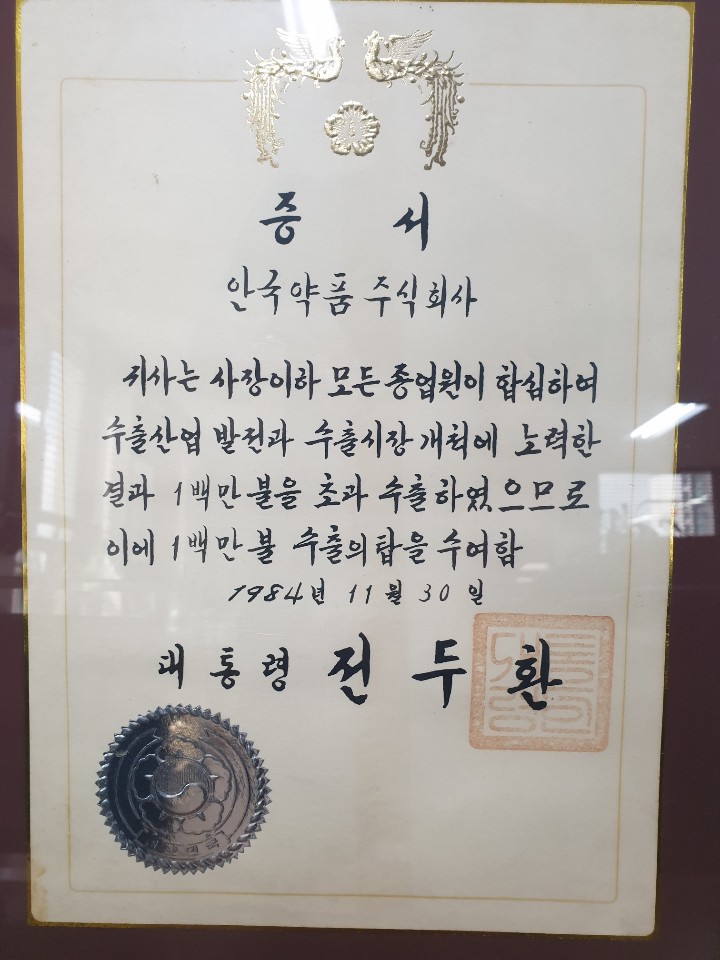 증 서
안국약품 주식회사
귀사는 사장이하 모든 종업원이 합심하여
수출산업 발전과 수출시장 개척에 노력한
결과 1백만 불을 초과 수출하였으므로
이에 1백만불 수출의탑을 수여함
1984년 11월 30일
대통령 전두환